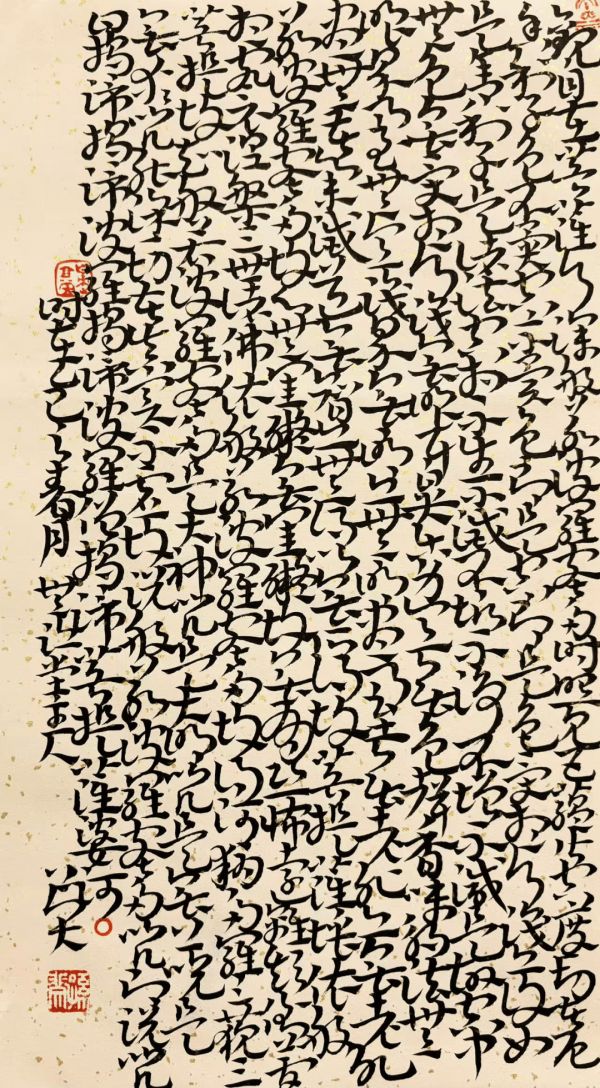 觀自在菩薩行深般若波羅蜜多時照見五蘊皆空度一切苦厄
舍利子色不異空空不異色色即是空空即是色受想行識亦復如
是舍利子是諸法空相不生不滅不垢不淨不增不減是故空中
無色無受想行識無眼耳鼻舌身意無色聲香味觸法無
眼界乃至無意識界無無明亦無無明盡乃至無老死亦無老死
盡無苦集滅道無智亦無得以無所得故菩提薩埵依般
若波羅蜜多故心無罣礙無罣礙故無有恐怖遠離顛倒夢
想究竟涅槃三世諸佛依般若波羅蜜多故得阿耨多羅三藐三
菩提故知般若波羅蜜多是大神咒是大明咒是無上咒是
無等等咒能除一切苦真實不虛故說般若波羅蜜多咒即說咒
曰揭諦揭諦波羅揭諦波羅僧揭諦菩提薩婆訶
時在乙巳春月 主人